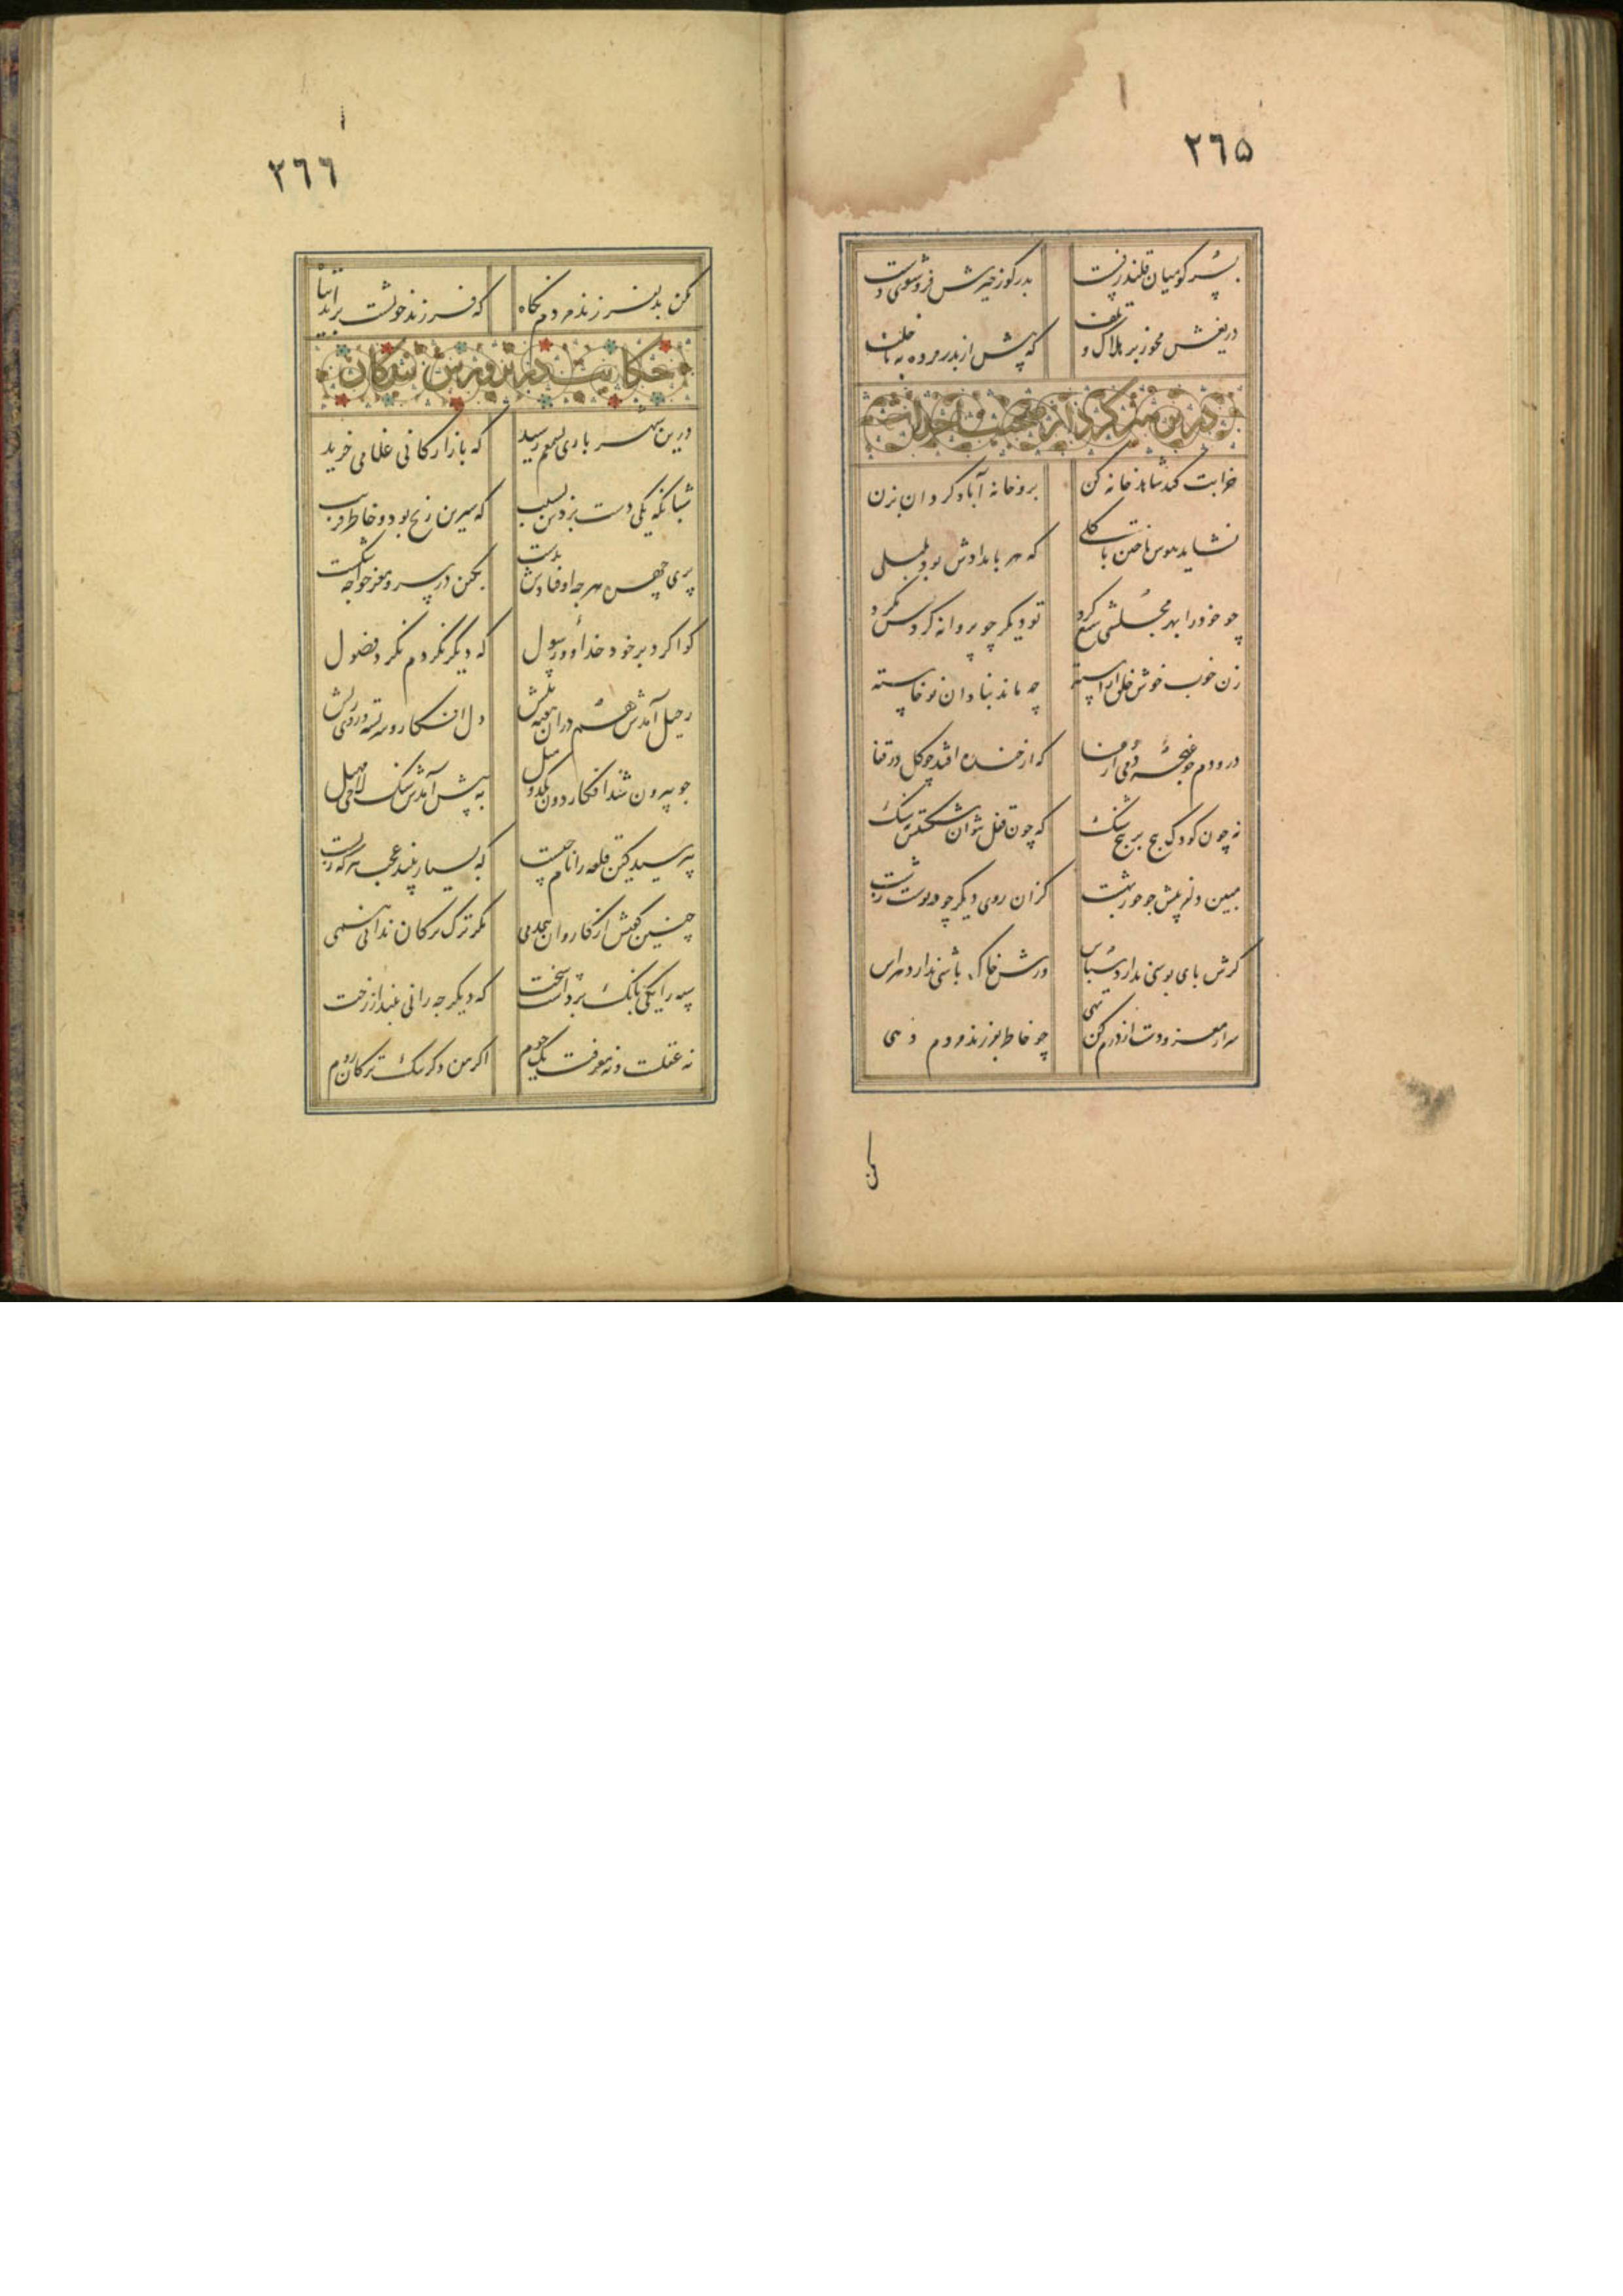 ٢٦۵
پسر کو میان قلندر نشست پدر گو ز خیرش فروشوی دست
دریغش مخور بر هلاک و تلف که پیش از پدر مرده به ناخلف
خرابت کند شاهد خانه کن برو خانه آباد گردان بزن
نشاید هوس باختن با گلی که هر بامدادش بود بلبلی
چو خود را بهر مجلسی شمع کرد تو دیگر چو پروانه گردش مگرد
زن خوب خوش خلق آراسته چه ماند بنادان نوخاسته
درو دم چو غنچه دمی از وفا که از خنده افتد چو گل در قفا
نه چون کودک پیچ بر پیچ شنگ که چون مقل نتوان شکستن بسنگ
مبین دلفریبش چو حور بهشت کزان روی دیگر چو غولست زشت
گرش پای بوسی ندارد سپاس ورش خاک باشی ندارد هراس
سر از مغز و دست از درم کن تهی چو خاطر بفرزند مردم نهی
مکن
٢٦٦
مکن بد بفرزند مردم نگاه که فرزند خویشت برآید تباه
حکایت در پرورش
درین شهر باری بسمعم رسید که بازارگانی غلامی خرید
شبانگه یکی دست بردش بسیب که سیمین زنخ بود و خاطر فریب
پری چهره هرچه اوفتادش بدست بکین در سر و مغز خواجه شکست
گوا کرد بر خود خدا و رسول که دیگر نگردم بگرد فضول
رحیل آمدش هم دران هفته پیش دل افکار و سر بسته و روی ریش
چو بیرون شد از کازرون یکدو میل به پیش آمدش سنگلاخی مهیل
بپرسید کین قلعه را نام چیست که بسیار بیند عجب هر که زیست
چنین گفتش از کاروان همدمی مگر تنگ ترکان ندانی همی
سیه را یکی بانگ برداشت سخت که دیگر چه رانی بینداز رخت
نه عقلست و نه معرفت یک جوم اگر من دگر تنگ ترکان روم